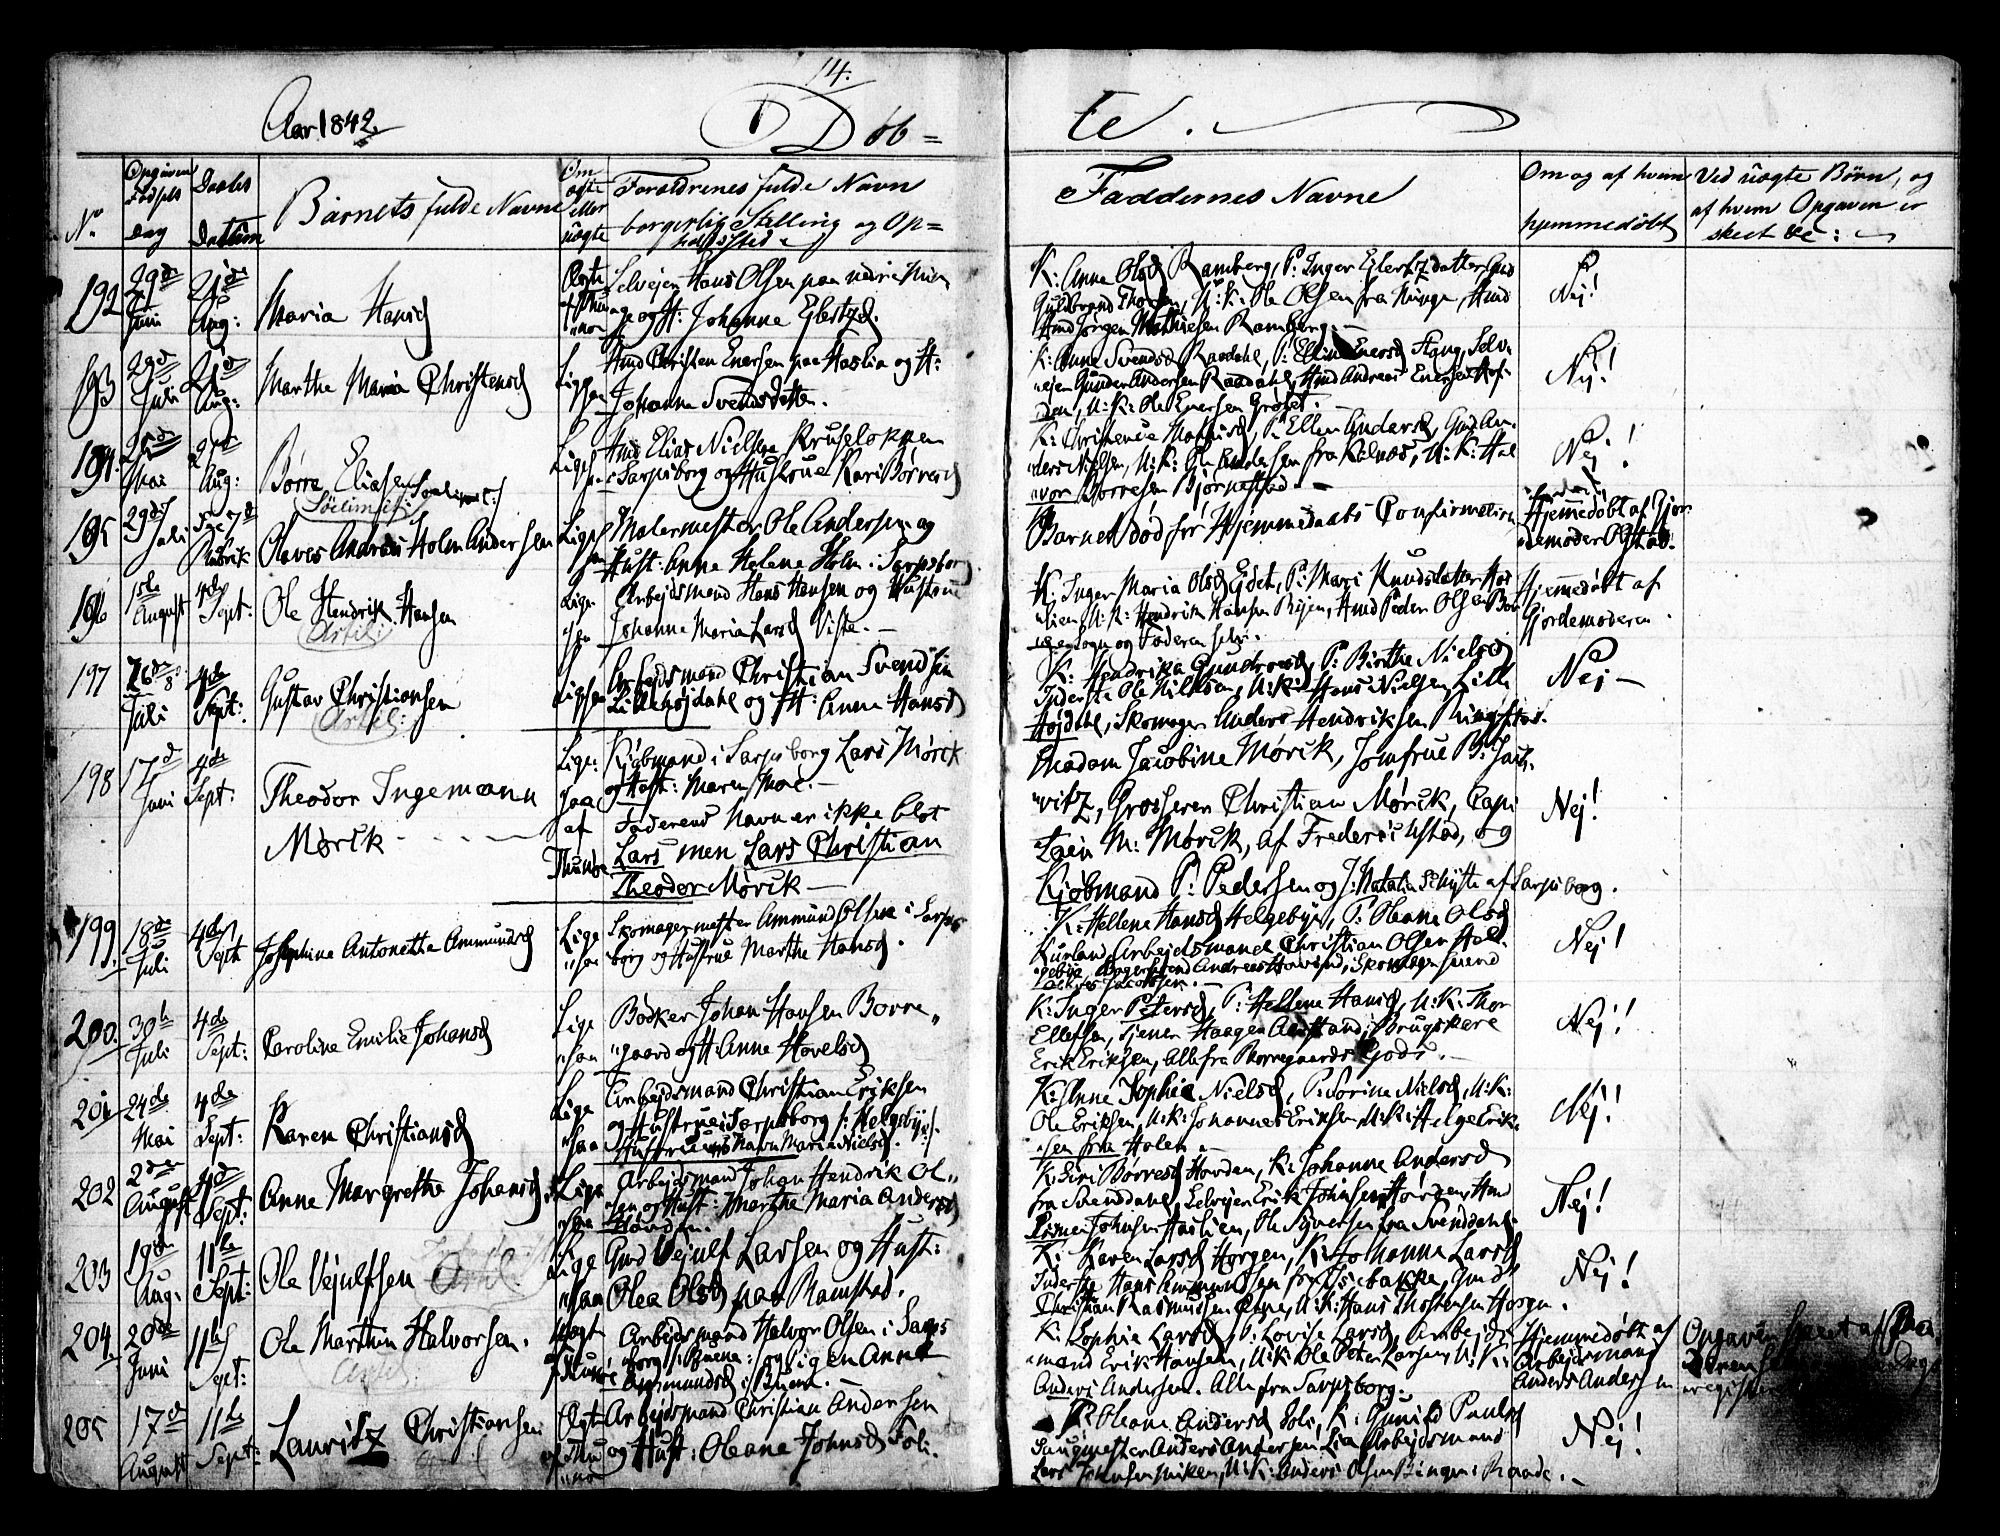 14.
Aar 1842.
Døb=
te.
No
Opgiven Fødsels Dag
Daabs Datum
Barnets fulde Navne
Om ægte eller uægte
Forældrenes fulde Navn
borgerlig Stilling og Op=
holdssted
Faddernes Navne
Om og af hvem
hjemmedøbt
Ved uægte Børn, og
af hvem Opgaven er
skeet &c:
192
29de Juni
21de Aug:
Maria Hansd
Ægte
Selvejer Hans Olsen paa nedre
og H: Johanne
K: Anne Olsd Ramberg, P: Inger
Guldbrand Thorsen, U: K: Ole Olsen fra
Jørgen Mathiesen Ramberg.
Nej!
193
29de Juli
21de Aug:
Marthe Maria Christensd
Ligesaa
Christen Enersen paa Haslia og H:
Johanne Svendsdatter.
K: Anne Svendsd Raadahl, P: Ellin Enersd Stang, Selv=
ejer Gunder Andersen Raadahl, Gmd Andreas Enersen
U: K: Ole Enersen
Nej!
194
25de Mai
21de Aug:
Børre Eliasen
Søelimit:
Ligesaa
Elias Nielsen Kruseløkken
Sarpsborg og Hustrue Kari Børresd
K: Christence Mathisd, P: Ellen Andersd,
Nielsen, U: K: Ole Andersen fra Kalnæs, U: K: Hal=
vor Børresen Bjørnestad.
Nej!
195
29de Juli
Olaves Andreas Holm Andersen
Ligesaa
Malermester Ole Andersen og
Hust: Anne Helene Holm i Sarpsborg
Barnet død før Hjemmedaabs Confirmation
Hjemmedøbt af Gjor
demoder Olstad.
196
15de August
4de Sept:
Ole Hendrik Hansen
Artil:
Ligesaa
Arbejdsmand Hans Hansen og Hustrue
Johanne Maria Larsd Viste.
K: Inger Maria Olsd Eidet, P: Mari Knudsdatter
U: K: Hendrik Hansen Byen, Gmd Peder Olsen
Sogn og Faderen selv.
Hjemmedøbt af
Gjordemoderen.
197
26de Juli
4de Sept:
Gustav Christiansen
Artil:
Ligesaa
Arbejdsmand Christian Svendsen
Lillehøjdahl og H: Anne Hansd
K: Hendrika Gundersd, P: Birthe Nielsd
Inderste Ole Nilssen, U: K: Hans Nielsen Lille
Højdahl, Skomager Anders Hendriksen Ringstad.
Nej
198
17de Juni
4de Sept:
Theodor Ingemann
Mørck
Lige=
saa
af
Thune
Kjøbmand i Sarpsborg Lars Mørck
og Hust: Maren Moe.
Faderens Navn er ikke blot
Lars men Lars Christian
Theodor Mørck
Madam Jacobine Mørck, Jomfrue B: Jach
witz, Grosserer Christian Mørck, Capi
tain M: Mørck, af Fredericstad, og
Kjøbmand P: Pedersen og J: Natalia Schytte af Sarpsborg.
Nej!
199.
18de Juli
4de Sept
Josephine Antonetta Ammundsd
Lige
saa
Skomagermester Ammund Olsen i Sarps
borg og Hustrue Marthe Hansd.
K: Hellene Hansd Helgebye, P: Oleane Olsd
Kurland, Arbejdsmand Christian Olsen Hel=
gebye, Bagersvend Andreas Skomagersvend
Jacobsen.
Nej!
200.
30te Juli
4de Sept:
Caroline Emilie Johansd
Lige
saa
Bødker Johan Hansen Borre=
gaard og H: Anne Hovelsd
K: Inger Petersd, P: Hellene Hansd, U: K: Thor
Ellefsen, Tjener Haagen Brugskarl
Erik Eriksen, Alle fra Borregaards Gods.
Nej!
201
24de Mai
4de Sept:
Karen Christiansd
Lige
saa
Arbejdsmand Christian Eriksen
og Hustrue i Sarpsborg /: Helgebye :/.
Hustruens Navn Maria Nielsd.
K: Anne Sophie Nielsd, P: Sorine Nielsd, U: K:
Ole Eriksen, U: K: Johannes Eriksen U: K: Helge Erik=
sen fra Holen
Nej!
202
2den August
4de Sept:
Anne Margrethe Johansd
Lige
saa
Arbejdsmand Johan Hendrik Ol=
sen og Hust: Marthe Maria Andersd
Howden.
K: Siri Børresd Howden, K: Johanne Andersd
fra Svenddahl, Selvejer Erik Johnsen Gmd
Johnsen Haslien, Ole Syversen fra Svenddahl.
Nej!
203
19de Aug.
11te Sept:
Ole Vejulfsen
Artil:
Lige
saa
Gmd Vejulf Larsen og Hust:
Olea Olsd paa Ramstad.
K: Karen Larsd Horgen, K: Johanna Larsd
Inderste Hans Ammundsen fra Isebakke, Gmd
Christian Rasmussen U: K: Hans Thostensen Horgen.
Nej!
204.
20de Juni
11te Sept:
Ole Marthin Halvorsen.
Artil:
Uægt
Arbejdsmand Halvor Olsen i Sarps
borg og Pigen Anne
Ammundsd i
K: Sophie Larsd, P: Lovise Larsd, Arbejds=
mand Erik Hansen, U: K: Ole Peter Larsen, U: K:
Anders Andersen. Alle fra Sarpsborg.
Hjemmedøbt af
Arbejdsmand
Anders Andersen
Opgaven
205
17de August
11te Sept:
Lauritz Christiansen
Ægt
Arbejdsmand Christian Andersen
og Hust: Oleane Johnsd Soli.
P: Oleane Andersd Soli, K: Gunild Paulsd
Saugmester Anders Andersen Lia Arbejdsmand
Lars Johnsen U: K: Anders Olsen i Raade.
Nej!